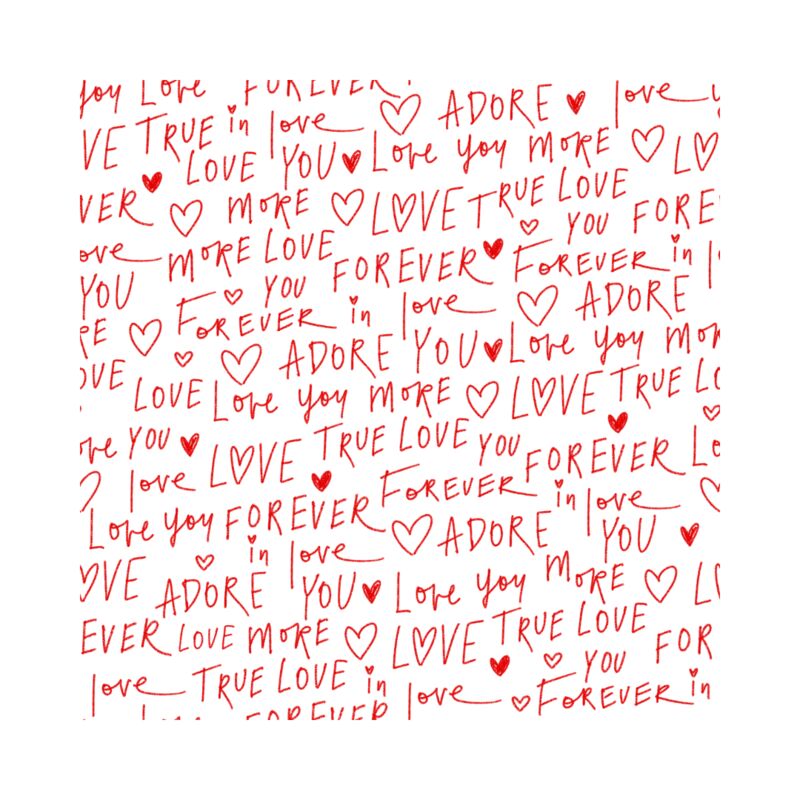 you Love FOREVER
VE TRUE in love ADORE love
LOVE YOU Love you MORE LO
VER MORE LOVE TRUE LOVE
ove MORE LOVE YOU FORE
YOU FOREVER FOREVER in
FOREVER YOU in love ADORE
RE ADORE YOU Love you MOR
OVE LOVE Love you MORE LOVE TRUE LO
ove YOU LOVE TRUE LOVE YOU FOREVER Lo
love FOREVER in love
Love you FOREVER ADORE YOU
OVE in love
ADORE YOU Love you MORE LO
EVER LOVE MORE LOVE TRUE LOVE
love TRUE LOVE in love YOU FOR
FOREVER FOREVER in